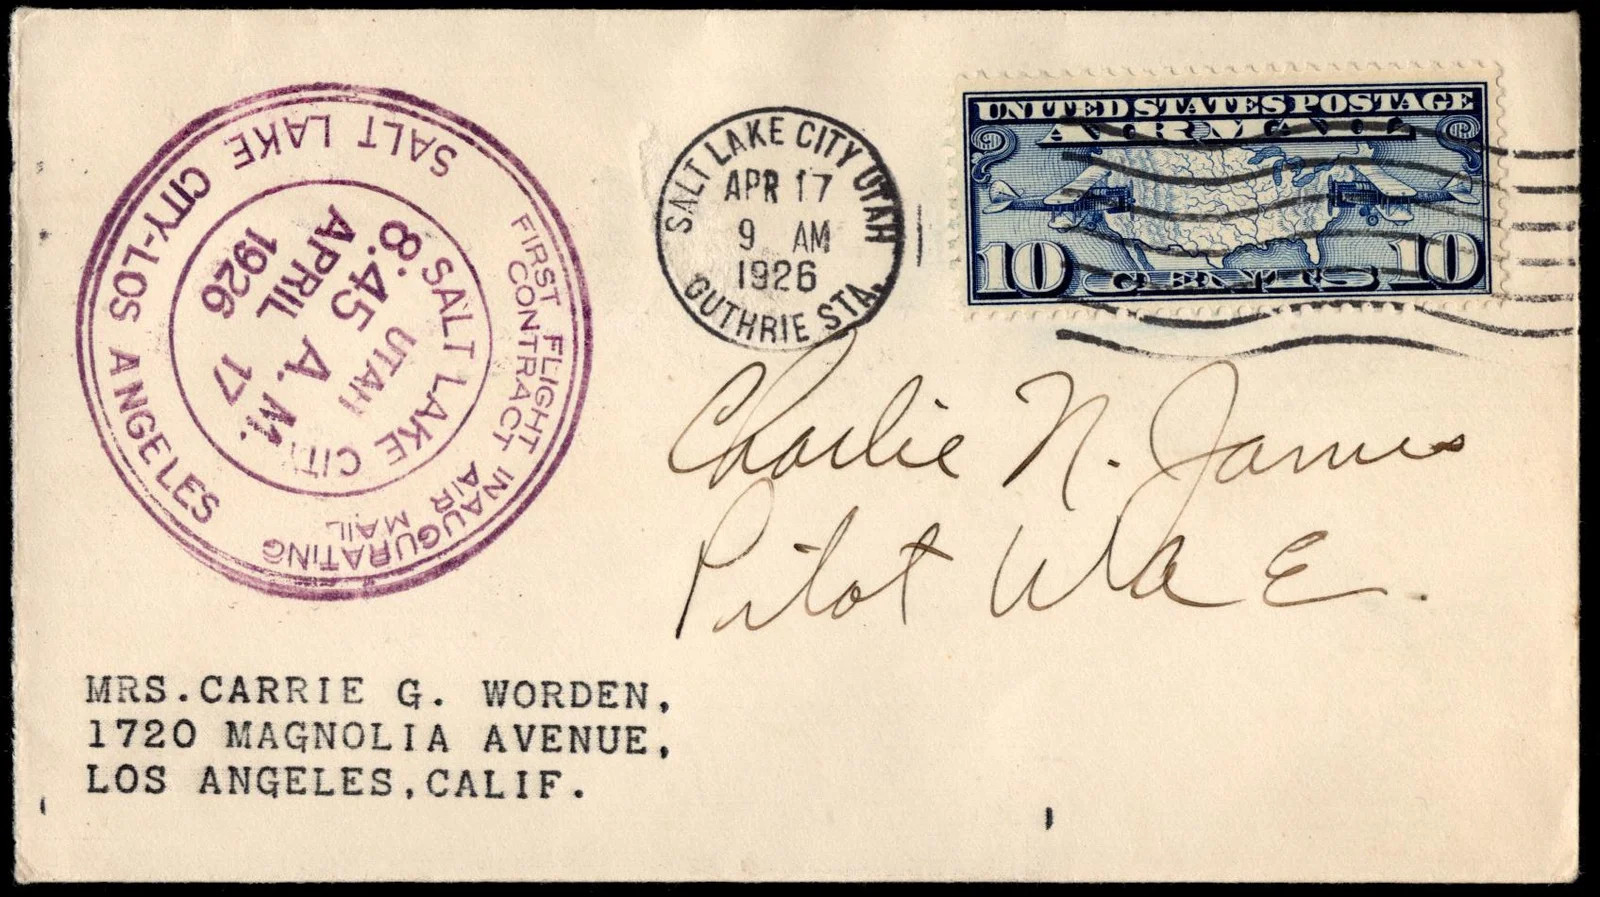 SALT LAKE CITY-LOS ANGELES
FIRST FLIGHT INAUGURATING
CONTRACT AIR MAIL
SALT LAKE CITY
UTAH
8:45 A.M.
APRIL 17
1926
SALT LAKE CITY UTAH
APR 17
9 AM
1926
GUTHRIE STA.
UNITED STATES POSTAGE
AIR MAIL
10 CENTS 10
Charlie N. James
Pilot W A E.
MRS.CARRIE G. WORDEN,
1720 MAGNOLIA AVENUE,
LOS ANGELES,CALIF.